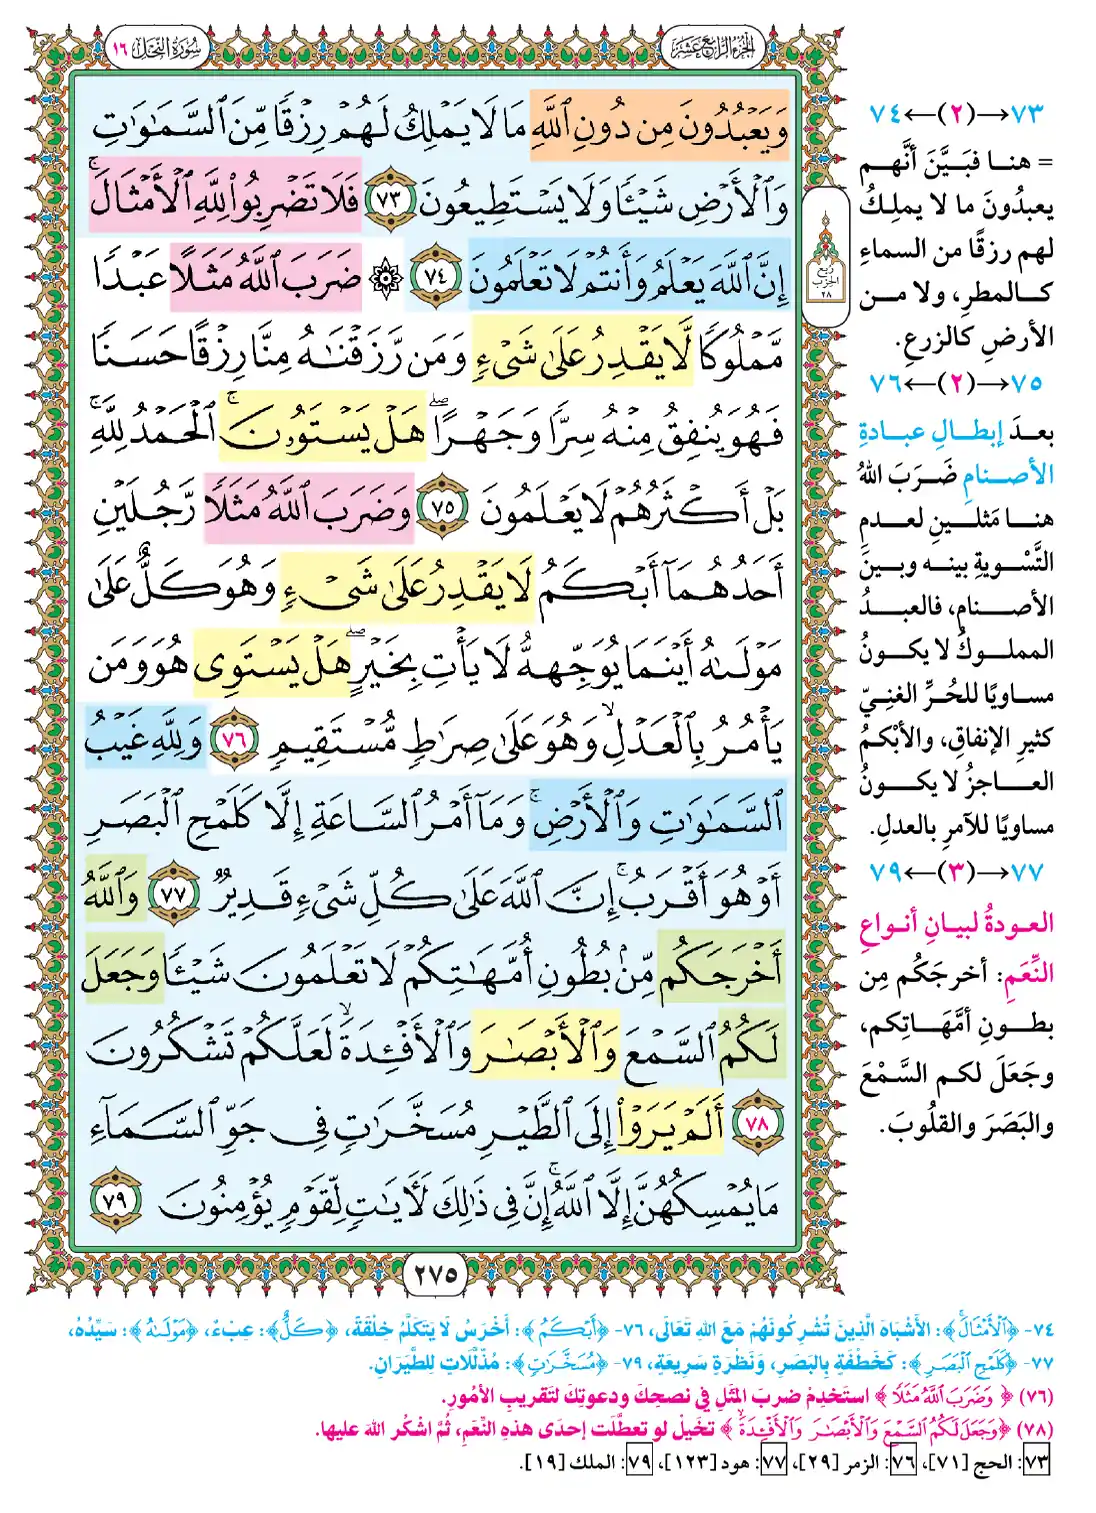 الجزء الرابع عشر
سورة النحل ١٦
وَيَعْبُدُونَ مِن دُونِ ٱللَّهِ مَا لَا يَمْلِكُ لَهُمْ رِزْقًا مِّنَ ٱلسَّمَٰوَٰتِ
وَٱلْأَرْضِ شَيْـًٔا وَلَا يَسْتَطِيعُونَ ٧٣ فَلَا تَضْرِبُوا۟ لِلَّهِ ٱلْأَمْثَالَ ۚ
إِنَّ ٱللَّهَ يَعْلَمُ وَأَنتُمْ لَا تَعْلَمُونَ ٧٤ ۞ ضَرَبَ ٱللَّهُ مَثَلًا عَبْدًا
مَّمْلُوكًا لَّا يَقْدِرُ عَلَىٰ شَىْءٍ وَمَن رَّزَقْنَٰهُ مِنَّا رِزْقًا حَسَنًا
فَهُوَ يُنفِقُ مِنْهُ سِرًّا وَجَهْرًا ۖ هَلْ يَسْتَوُۥنَ ۚ ٱلْحَمْدُ لِلَّهِ ۚ
بَلْ أَكْثَرُهُمْ لَا يَعْلَمُونَ ٧٥ وَضَرَبَ ٱللَّهُ مَثَلًا رَّجُلَيْنِ
أَحَدُهُمَآ أَبْكَمُ لَا يَقْدِرُ عَلَىٰ شَىْءٍ وَهُوَ كَلٌّ عَلَىٰ
مَوْلَىٰهُ أَيْنَمَا يُوَجِّههُّ لَا يَأْتِ بِخَيْرٍ ۖ هَلْ يَسْتَوِى هُوَ وَمَن
يَأْمُرُ بِٱلْعَدْلِ ۙ وَهُوَ عَلَىٰ صِرَٰطٍ مُّسْتَقِيمٍ ٧٦ وَلِلَّهِ غَيْبُ
ٱلسَّمَٰوَٰتِ وَٱلْأَرْضِ ۚ وَمَآ أَمْرُ ٱلسَّاعَةِ إِلَّا كَلَمْحِ ٱلْبَصَرِ
أَوْ هُوَ أَقْرَبُ ۚ إِنَّ ٱللَّهَ عَلَىٰ كُلِّ شَىْءٍ قَدِيرٌ ٧٧ وَٱللَّهُ
أَخْرَجَكُم مِّنۢ بُطُونِ أُمَّهَٰتِكُمْ لَا تَعْلَمُونَ شَيْـًٔا وَجَعَلَ
لَكُمُ ٱلسَّمْعَ وَٱلْأَبْصَٰرَ وَٱلْأَفْـِٔدَةَ ۙ لَعَلَّكُمْ تَشْكُرُونَ
٧٨ أَلَمْ يَرَوْا۟ إِلَى ٱلطَّيْرِ مُسَخَّرَٰتٍ فِى جَوِّ ٱلسَّمَآءِ
مَا يُمْسِكُهُنَّ إِلَّا ٱللَّهُ ۗ إِنَّ فِى ذَٰلِكَ لَءَايَٰتٍ لِّقَوْمٍ يُؤْمِنُونَ ٧٩
٢٧٥
ربع
الحزب
٢٨
٧٣→(٢)←٧٤
= هنا فَبَيَّنَ أنَّهم
يعبدُونَ ما لا يملِكُ
لهم رزقًا من السماءِ
كالمطرِ، ولا من
الأرضِ كالزرعِ.
٧٥→(٢)←٧٦
بعدَ إبطالِ عبادةِ
الأصنامِ ضَرَبَ اللهُ
هنا مَثلينِ لعدمِ
التَّسْويةِ بينه وبينَ
الأصنامِ، فالعبدُ
المملوكُ لا يكونُ
مساويًا للحُرِّ الغنِيّ
كثيرِ الإنفاقِ، والأبْكمُ
العاجزُ لا يكونُ
مساويًا للآمرِ بالعدلِ.
٧٧→(٣)←٧٩
العودةُ لبيانِ أنواعِ
النِّعَمِ: أخرجَكُم مِن
بطونِ أمَّهَاتِكم،
وجَعَلَ لكم السَّمْعَ
والبَصَرَ والقلُوبَ.
٧٤- ﴿ٱلْأَمْثَالَ﴾: الأَشْبَاهَ الَّذِينَ تُشْرِكُونَهُمْ مَعَ اللهِ تَعَالَى، ٧٦- ﴿أَبْكَمُ﴾: أَخْرَسُ لَا يَتَكَلَّمُ خِلْقَةً، ﴿كَلٌّ﴾: عِبْءٌ، ﴿مَوْلَىٰهُ﴾: سَيِّدُهُ،
٧٧- ﴿كَلَمْحِ ٱلْبَصَرِ﴾: كَخَطْفَةٍ بِالبَصَرِ، وَنَظْرَةٍ سَرِيعَةٍ، ٧٩- ﴿مُسَخَّرَٰتٍ﴾: مُذَلَّلَاتٍ لِلطَّيَرَانِ.
(٧٦) ﴿وَضَرَبَ ٱللَّهُ مَثَلًا﴾ استَخدِمْ ضربَ المَثَلِ في نصحِكَ ودعوتِكَ لتقريبِ الأمُورِ.
(٧٨) ﴿وَجَعَلَ لَكُمُ ٱلسَّمْعَ وَٱلْأَبْصَٰرَ وَٱلْأَفْـِٔدَةَ ۙ﴾ تخيلْ لو تعطَّلَت إحدَى هذهِ النِّعَمِ، ثُمَّ اشْكُر اللهَ عليها.
٧٣: الحج [٧١]، ٧٦: الزمر [٢٩]، ٧٧: هود [١٢٣]، ٧٩: الملك [١٩].